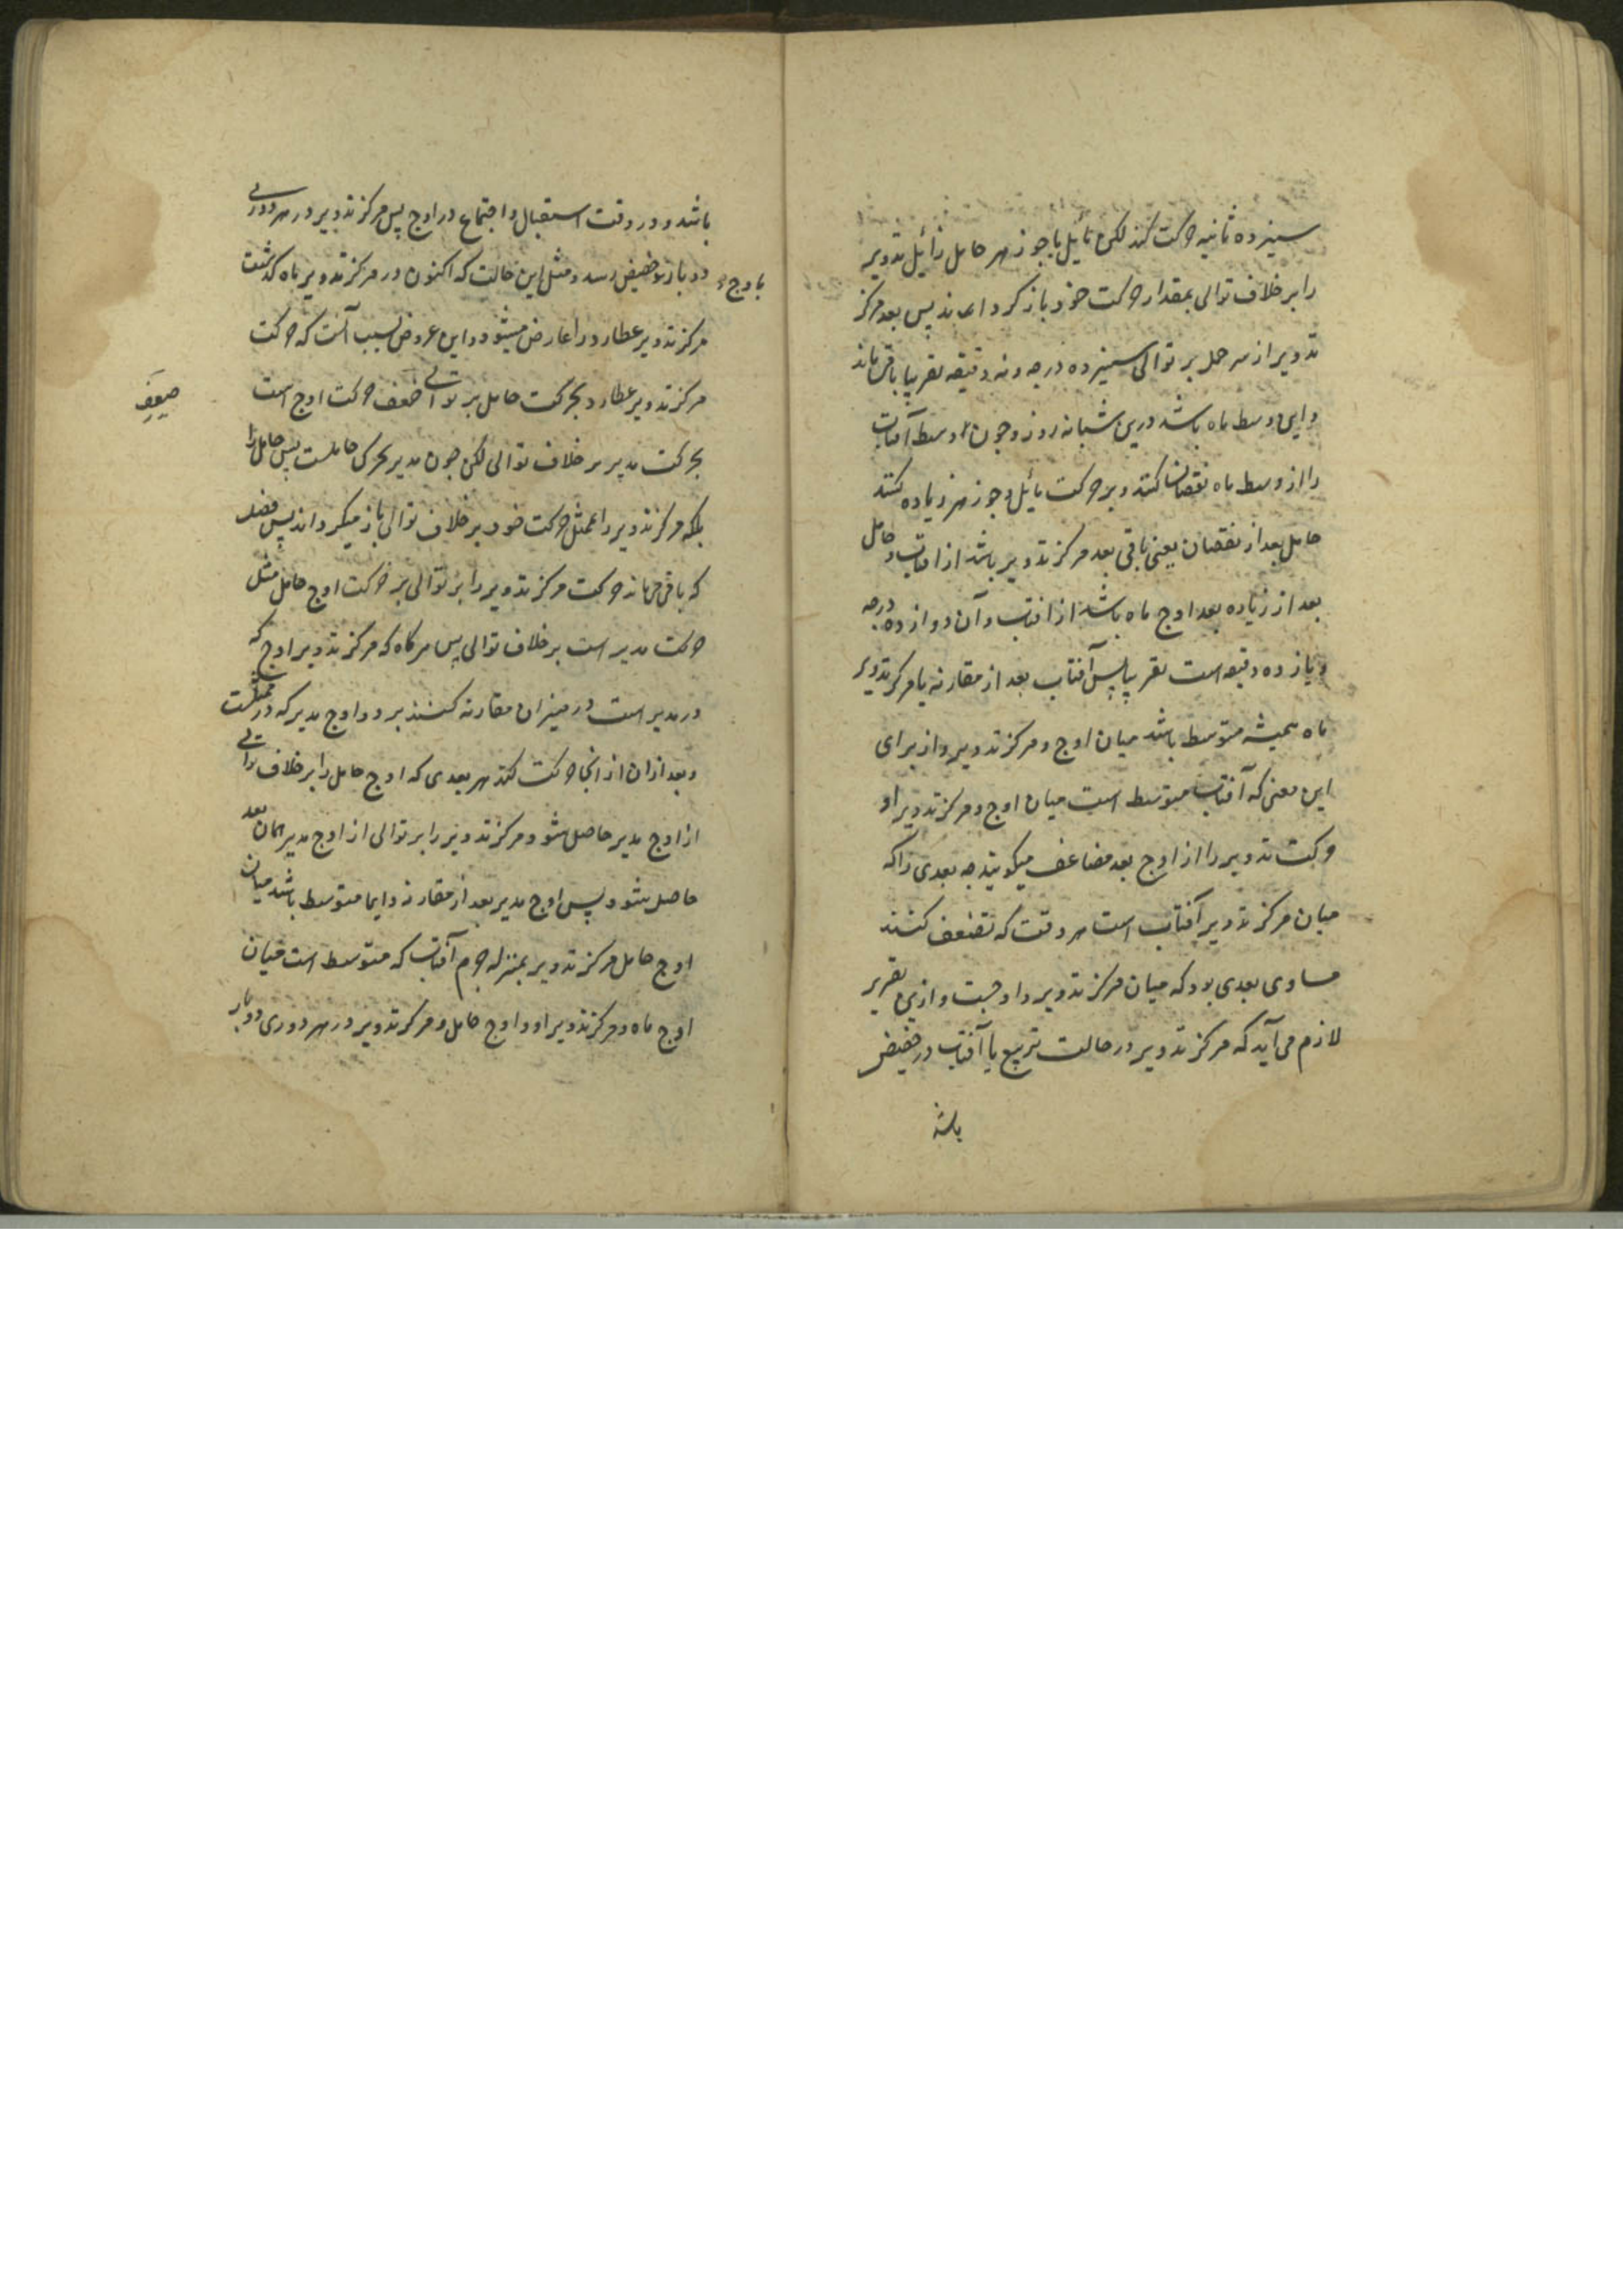 سیزده ثانیه حرکت کند لکن مایل با جوزهر حامل مرکز تدویر
را بر خلاف توالی بمقدار حرکت خود باز گرداند پس بعد مرکز
تدویر از سر حمل بر توالی سیزده درجه و نه دقیقه تقریبا باقی ماند
و این وسط ماه باشد درین شبانه روز و چون وسط آفتاب
را از وسط ماه نقصان کنند و بر حرکت مائل و جوزهر زیاده کنند
حاصل بعد از نقصان یعنی باقی بعد مرکز تدویر باشد از افتاب و حاصل
بعد از زیاده بعد اوج ماه باشد از افتاب و آن دوازده درجه
و یازده دقیقه است تقریبا پس آفتاب بعد از مقارنه با مرکز تدویر
ماه همیشه متوسط باشد میان اوج و مرکز تدویر و از برای
این معنی که آفتاب متوسط است میان اوج و مرکز تدویر او
حرکت تدویر را از اوج بعد مضاعف میگویند چه بعدی را که
میان مرکز تدویر آفتاب است هر وقت که تضعیف کنند
مساوی بعدی بود که میان مرکز تدویر و اوجست و ازین تقریر
لازم می آید که مرکز تدویر در حالت تربیع با آفتاب در حضیض
باشد
باشد و در وقت استقبال و اجتماع در اوج پس مرکز تدویر در هر دوری
دو بار باوج و حضیض رسد و مثل این حالت که اکنون در مرکز تدویر ماه گذشت
مرکز تدویر عطارد را عارض میشود و این عروض بسبب آنست که حرکت
مرکز تدویر عطارد بحرکت حامل بر توالی ضعف حرکت اوج است
ضعف
بحرکت مدیر بر خلاف توالی لکن چون مدیر محرک حاملست پس حامل را
بلکه مرکز تدویر را بمثل حرکت خود بر خلاف توالی باز میگرداند پس فضل
که باقی می ماند حرکت مرکز تدویر را بر توالی بر حرکت اوج حامل مثل
حرکت مدیر است بر خلاف توالی پس هرگاه که مرکز تدویر اوج که
در مدیر است در میزان مقارنه کنند بر دو اوج مدیر که در ممثلست
و بعد ازان از انجا حرکت کنند هر بعدی که اوج حامل را بر خلاف توالی
از اوج مدیر حاصل شود مرکز تدویر را بر توالی از اوج مدیر همان بعد
حاصل شود پس اوج مدیر بعد از مقارنه دایما متوسط باشد میان
اوج حامل مرکز تدویر بمنزله جرم آفتاب که متوسط است میان
اوج ماه و مرکز تدویر او و اوج حامل و مرکز تدویر در هر دوری دو بار